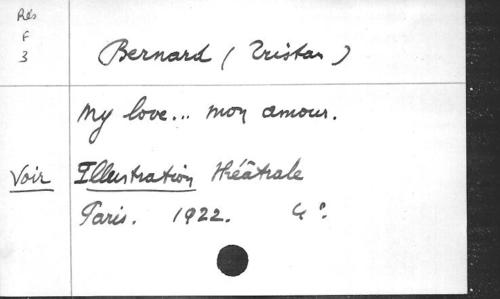 Rés
F
3
Bernard (Tristan)
My love... mon amour.
Voir Illustration théâtrale
Paris. 1922. 4°.